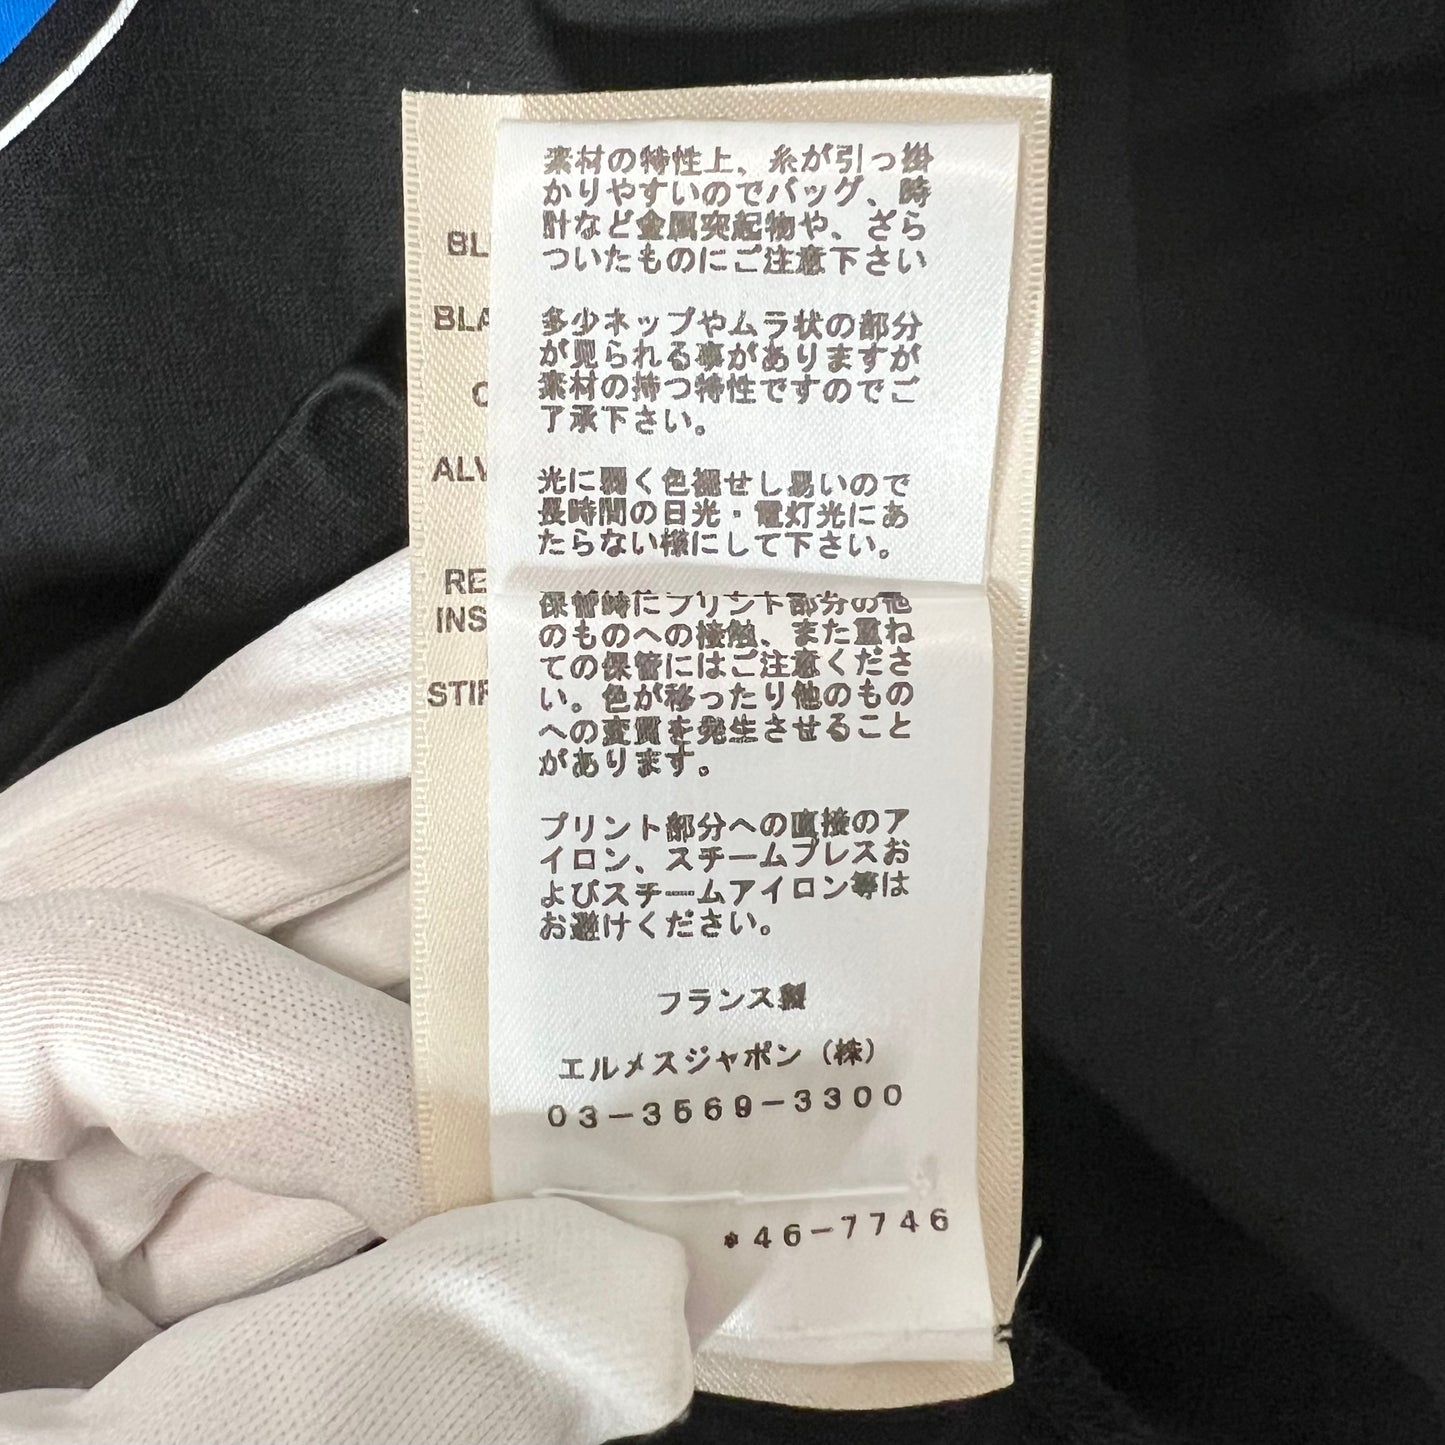 素材の特性上、糸が引っ掛
かりやすいのでバッグ、時
計など金属突起物や、ざら
ついたものにご注意下さい
多少ネップやムラ状の部分
が見られる事がありますが
素材の持つ特性ですのでご
了承下さい。
光に弱く色褪せし易いので
長時間の日光・電灯光にあ
たらない様にして下さい。
保管時にプリント部分の他
のものへの接触、また重ね
ての保管にはご注意くださ
い。色が移ったり他のもの
への変質を発生させること
があります。
プリント部分への直接のア
イロン、スチームプレスお
よびスチームアイロン等は
お避けください。
フランス製
エルメスジャポン（株）
03-3569-3300
*46-7746
BL
BLA
ALV
RE
INS
STIR